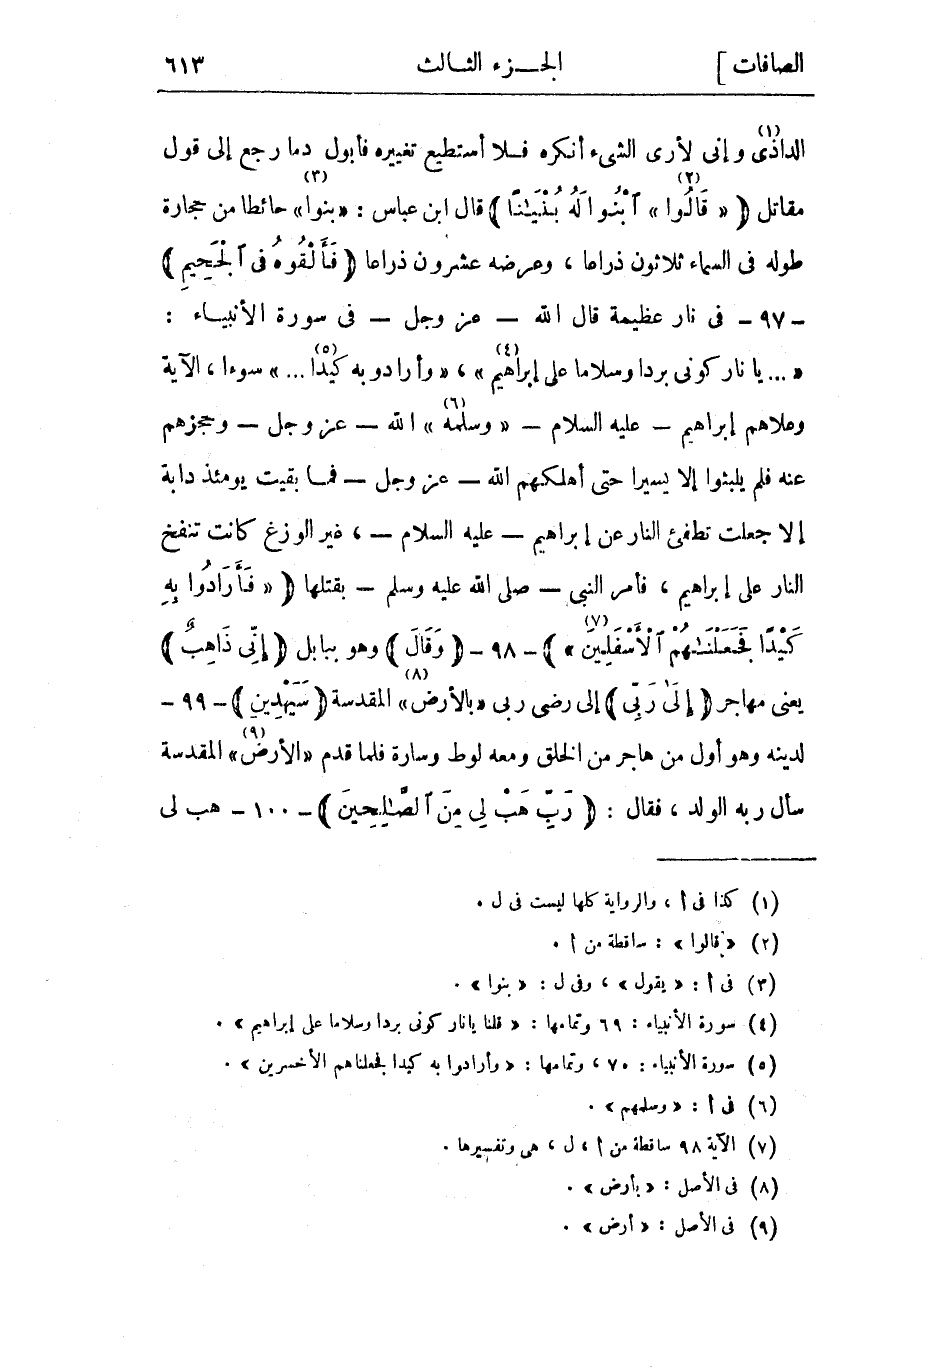 الصافات ] الجـزء الثـالث ٦١٣
الداذى(١) وإنى لأرى الشىء أنكره فـلا أستطيع تغييره فأبول دما رجع إلى قول
مقاتل ﴿ « قَالُوا(٢) » ٱبْنُوا لَهُ بُنْيَـٰنًا(٣) ﴾ قال ابن عباس : «بنوا» حائطا من حجارة
طوله فى السماء ثلاثون ذراعا ، وعرضه عشرون ذراعا ﴿ فَأَلْقُوهُ فِى ٱلْجَحِيمِ ﴾
ـ ٩٧ ـ فى نار عظيمة قال الله — عز وجل — فى سورة الأنبيـاء :
« ... يا نار كونى بردا وسلاما على إبراهيم(٤) » ، « وأرادو به كيدا(٥) ... » سوءا ، الآية
وعلاهم إبراهيم — عليه السلام — « وسلمه(٦) » الله — عز وجل — وحجزهم
عنه فلم يلبثوا إلا يسيرا حتى أهلكهم الله — عز وجل — فمـا بقيت يومئذ دابة
إلا جعلت تطفئ النار عن إبراهيم — عليه السلام — ، غير الوزغ كانت تنفخ
النار على إبراهيم ، فأمر النبى — صلى الله عليه وسلم — بقتلها ﴿ « فَأَرَادُوا بِهِ
كَيْدًا فَجَعَلْنَـٰهُمُ ٱلْأَسْفَلِينَ(٧) » ﴾ ـ ٩٨ ـ ﴿ وَقَالَ ﴾ وهو ببابل ﴿ إِنِّى ذَاهِبٌ ﴾
يعنى مهاجر ﴿ إِلَىٰ رَبِّى ﴾ إلى رضى ربى «بالأرض(٨)» المقدسة ﴿ سَيَهْدِينِ ﴾ ـ ٩٩ ـ
لدينه وهو أول من هاجر من الخلق ومعه لوط وسارة فلما قدم «الأرض(٩)» المقدسة
سأل ربه الولد ، فقال : ﴿ رَبِّ هَبْ لِى مِنَ ٱلصَّـٰلِحِينَ ﴾ ـ ١٠٠ ـ هب لى
(١) كذا فى أ ، والرواية كلها ليست فى ل .
(٢) « قالوا » : ساقطة من أ .
(٣) فى أ : « يقول » ، وفى ل : « بنوا » .
(٤) سورة الأنبياء : ٦٩ وتمامها : « قلنا يا نار كونى بردا وسلاما على إبراهيم » .
(٥) سورة الأنبياء : ٧٠ ، وتمامها : « وأرادوا به كيدا فجعلناهم الأخسرين » .
(٦) فى أ : « وسلمهم » .
(٧) الآية ٩٨ ساقطة من أ ، ل ، هى وتفسيرها .
(٨) فى الأصل : « بأرض » .
(٩) فى الأصل : « أرض » .